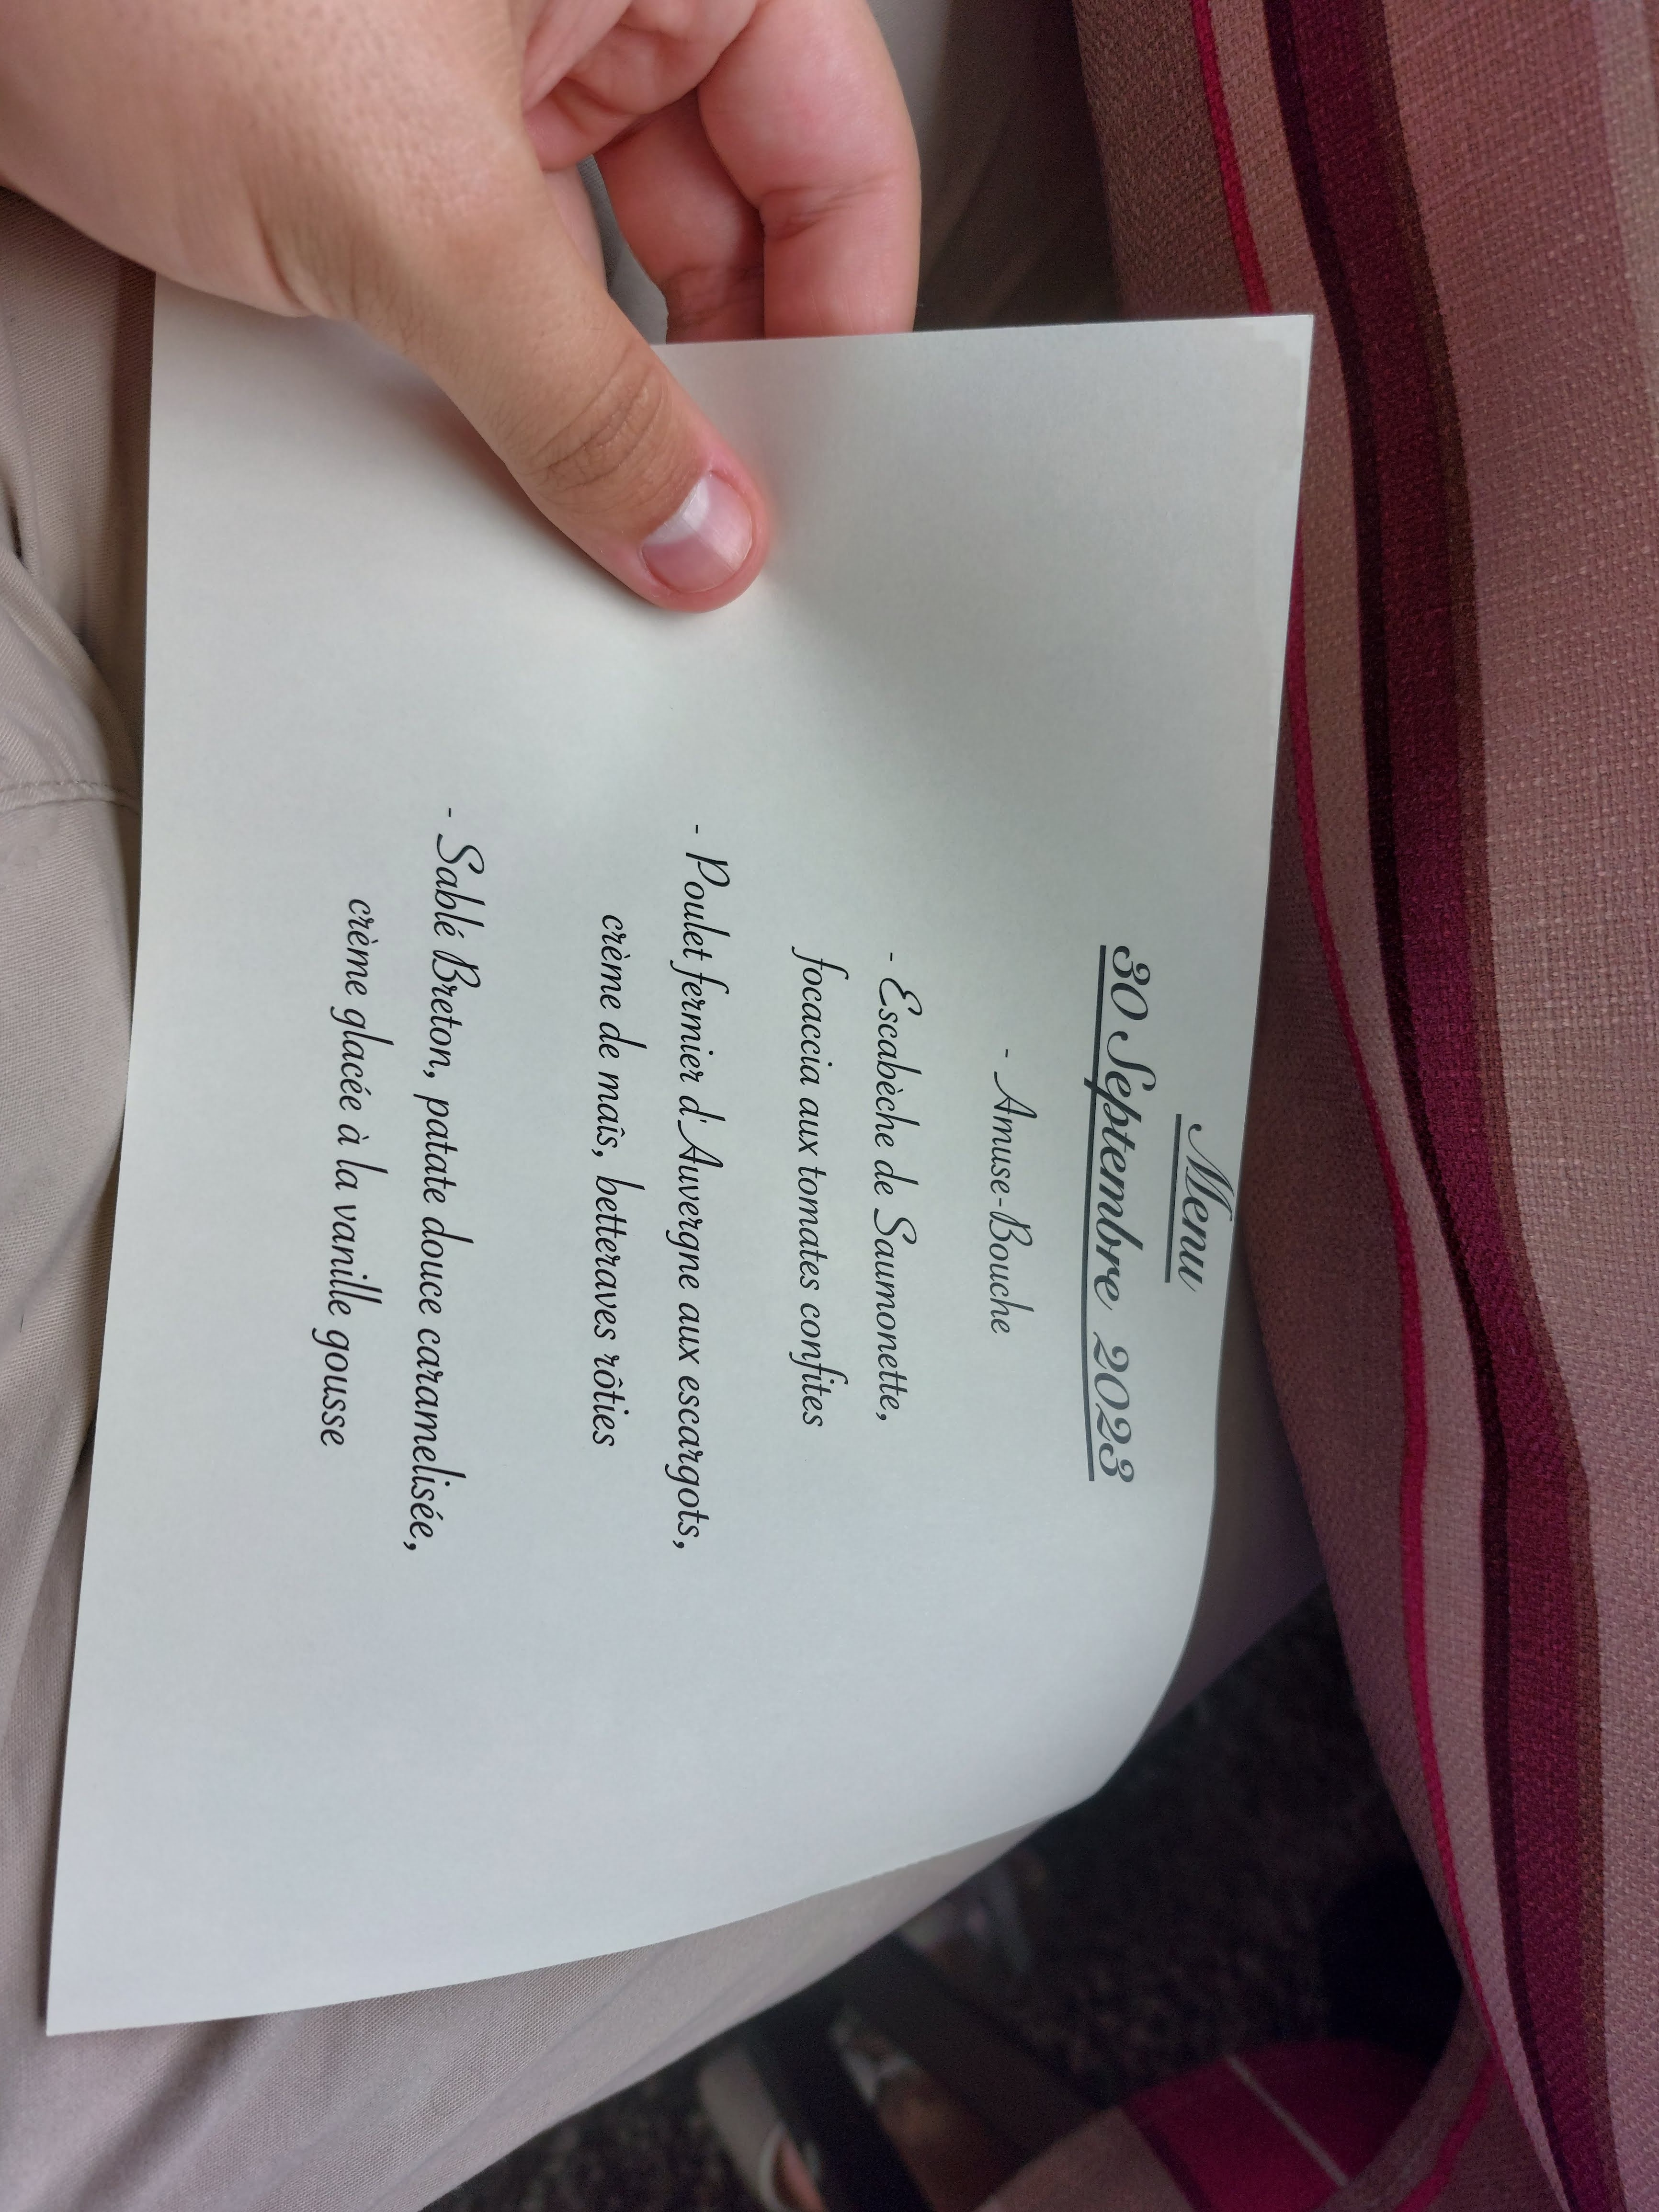 Menu
30 Septembre 2023
- Amuse-Bouche
- Escabèche de Saumonette,
focaccia aux tomates confites
- Poulet fermier d'Auvergne aux escargots,
crème de maîs, betteraves rôties
- Sablé Breton, patate douce caramelisée,
crème glacée à la vanille gousse